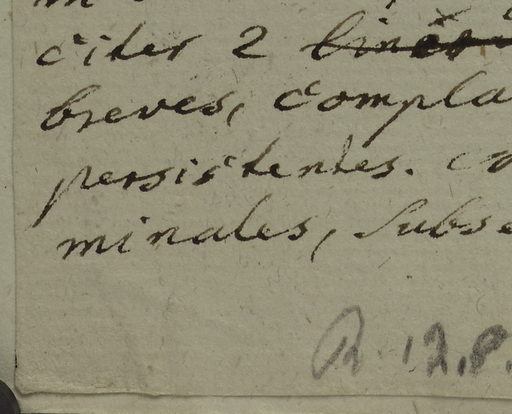 citer 2
breves, compla
persistentes.
minales, subse
R. 12.8.